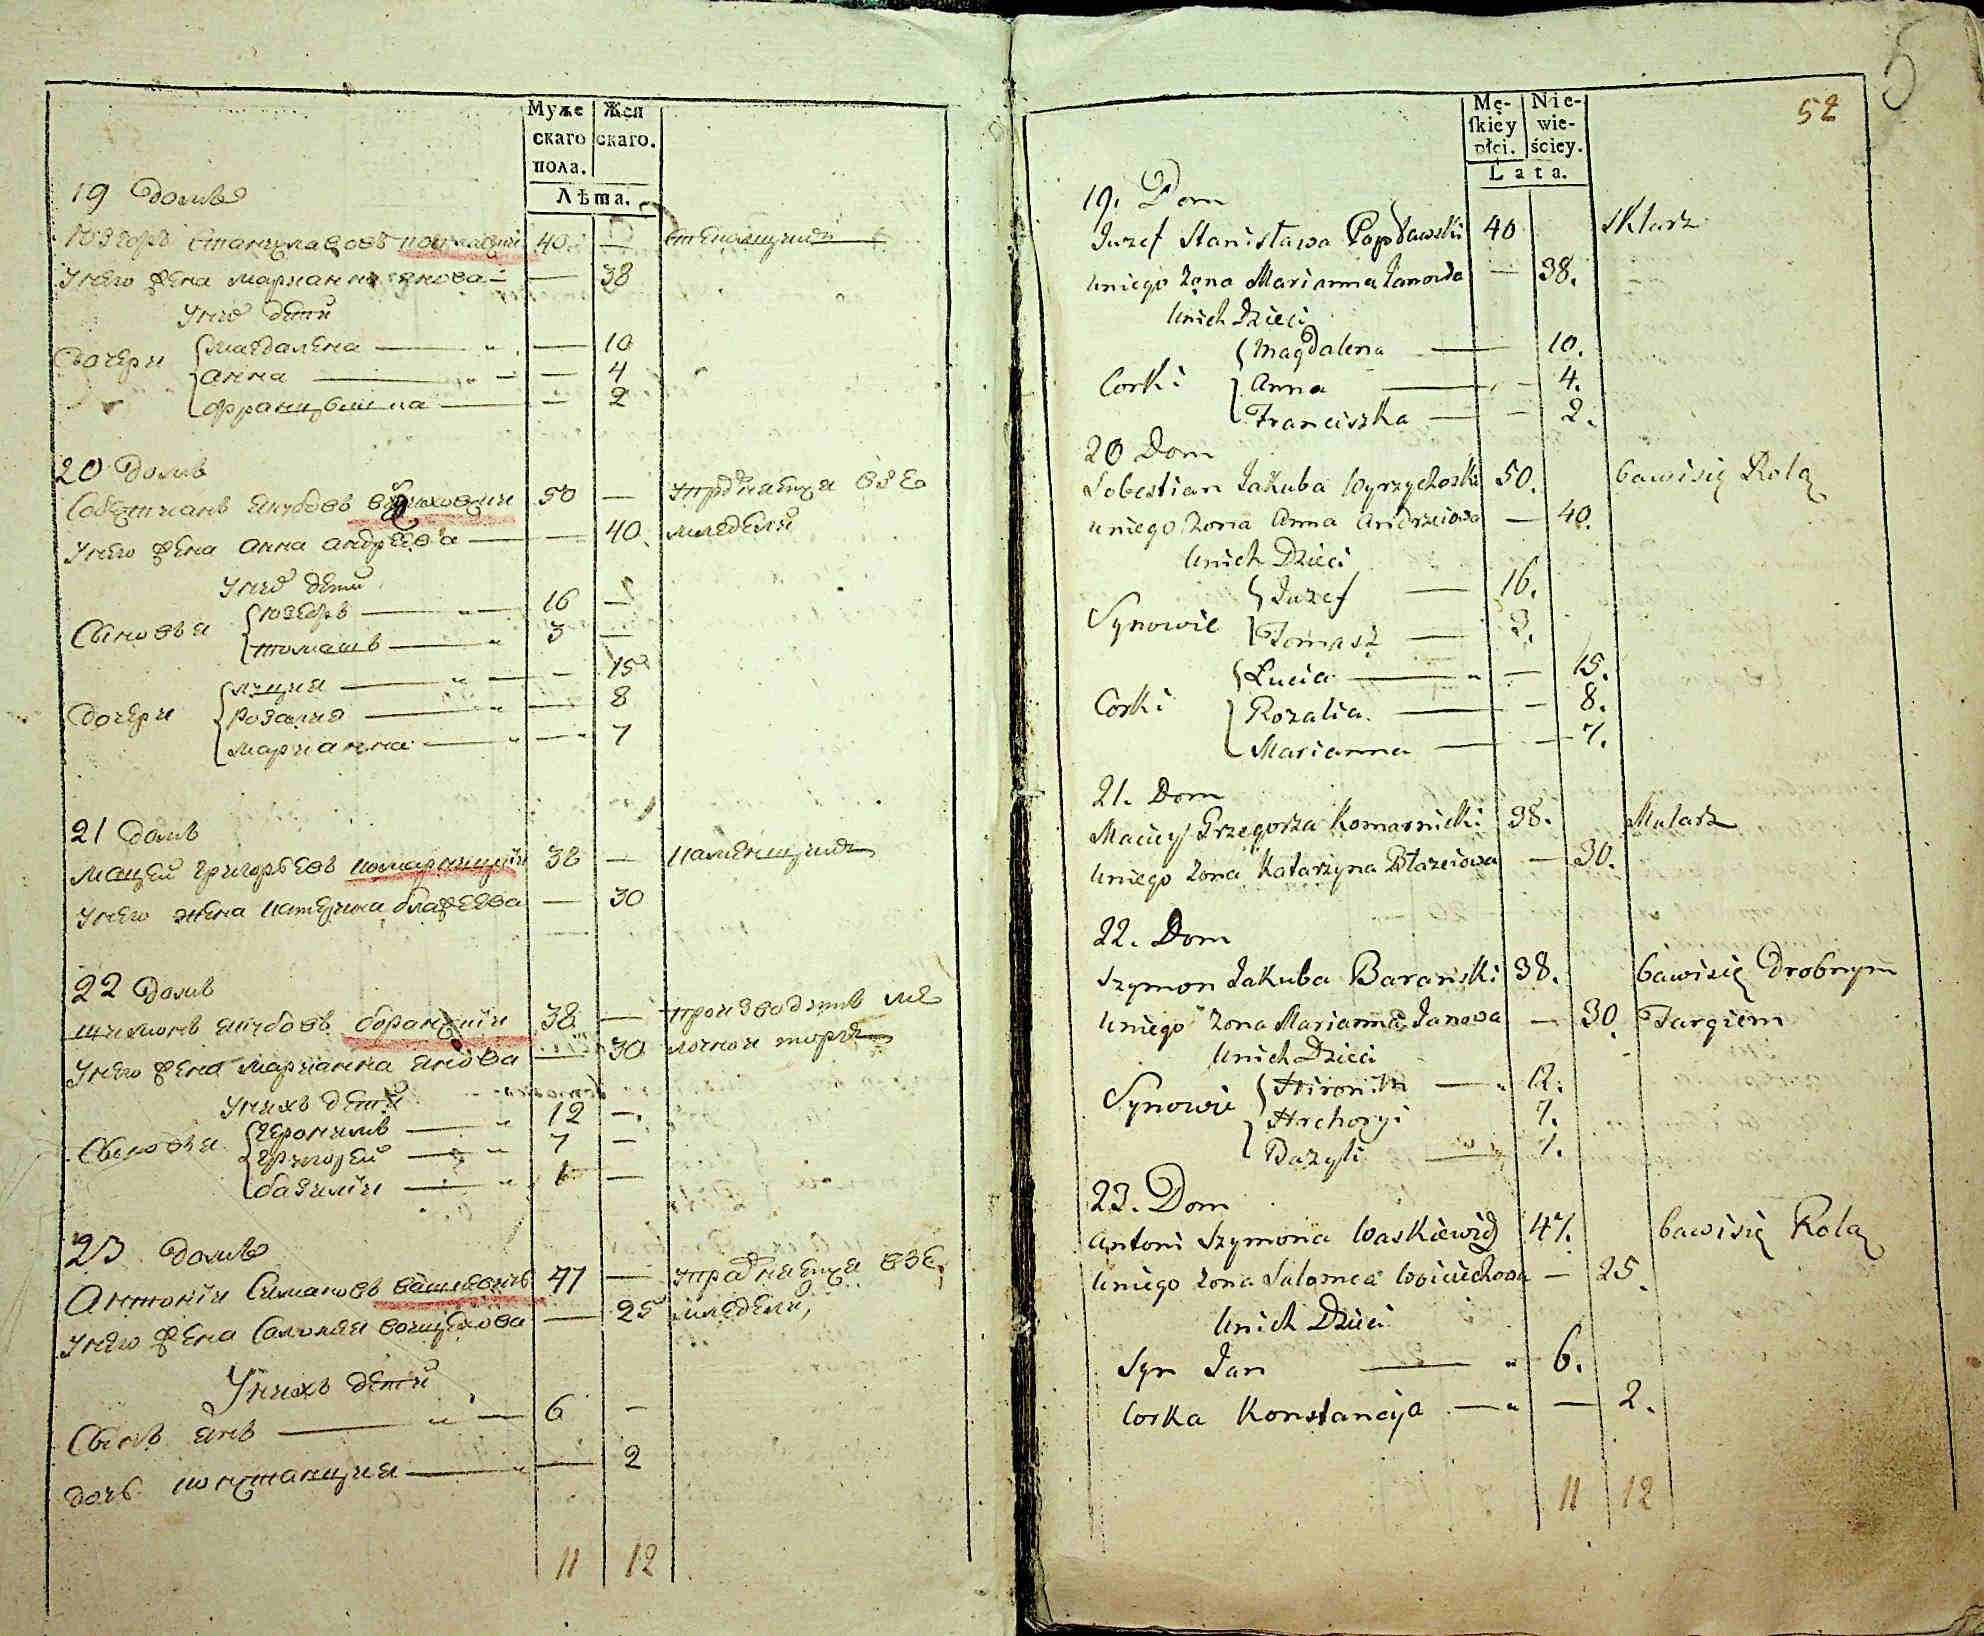 Муже Жен
скаго скаго.
пола.
Лѣта.
19 Домъ
Юзефъ Станиславовъ 40 —
У него жена Марианна Янова — 38
У них дети
Дочери Магдалена — 10
Анна — 4
Францишка — 2
20 Домъ
Якубовъ 50 — упражняется в зе
У него жена Анна Андреева — 40 мледели
У них дети
Сыновья Юзефъ — 16 —
Томашъ — 3 —
Дочери Луция — 15
Розалия — 8
Марианна — 7
21 Домъ
Мацей Григорьевъ Комарницкий 38 — каменщикъ
У него жена Катержина Блажеева — 30
22 Домъ
Шимонъ Якубовъ Баранский 38 — производитъ ме
У него жена Марианна Янова — 30 лочной торгъ
У нихъ дети
Сыновья Иеронимъ — 12 —
Григорей — 7 —
Базилий — 1 —
23 Домъ
Антоний Симановъ 47 — упражняется в зе
У него жена Саломея Войцехова — 25 мледели,
У нихъ дети
Сынъ Янъ — 6 —
Дочь Констанция — 2
11 12
5
52
Mę- Nie-
skiey wie-
płci. ściey.
Lata.
19. Dom
Jozef Stanisława Popławski 40 Sklarz
Uniego Zona Marianna Janowa — 38.
Unich Dzieci
Corki Magdalena — 10.
Anna — 4.
Franciszka — 2.
20 Dom
Sobestian Jakuba Wyrzykoski 50. bawisię Rolą
uniego Zona Anna Andrzeiowa — 40.
Unich Dzieci
Synowie Juzef — 16.
Tomasz — 3.
Corki Lucia — 15.
Rozalia — 8.
Marianna — 7.
21. Dom
Maciey Grzegorza Komarnicki 38. Mularz
Uniego Zona Katarzyna Błazeiowa — 30.
22. Dom
Szymon Jakuba Barański 38. bawisię Drobnym
Uniego Zona Marianna Janowa — 30. Targiem
Unich Dzieci
Synowie Hironim — 12.
Hrehory 7.
Bazyli — 1.
23. Dom
Antoni Szymona Waskiewicz 47. bawisię Rolą
Uniego Zona Salomea Woiciechowa — 25.
Unich Dzieci
Syn Jan — 6.
Corka Konstancya — 2.
11 12